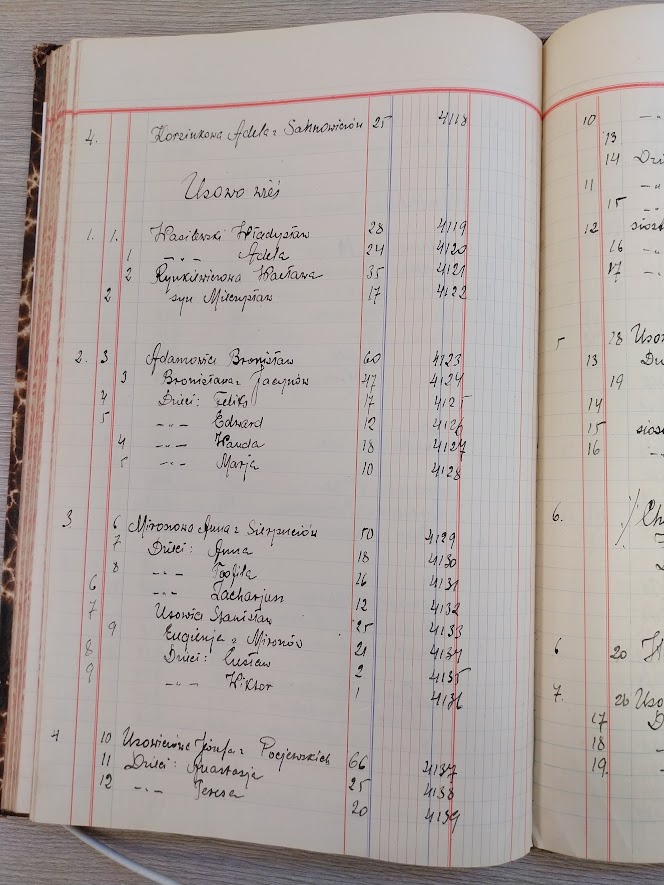 4. Korzinkowa Adela z Sakowiczów 25 4118
Usowo wieś
1. 1. Wasilewski Władysław 28 4119
1 -„- Adela 24 4120
2 Rynkiewiczowa Wacława 35 4121
2 syn Mieczysław 17 4122
2. 3 Adamowicz Bronisław 60 4123
3 Bronisława z Jacynów 47 4124
4 Dzieci: Feliks 17 4125
5 -„- Edward 12 4126
4 -„- Wanda 18 4127
5 -„- Marja 10 4128
3 6 Mironowa Anna z Sierpuciów 50 4129
7 Dzieci: Anna 18 4130
8 -„- Teofila 26 4131
6 -„- Zacharjusz 12 4132
7 Usowicz Stanisław 25 4133
9 Eugienja z Mironów 21 4134
8 Dzieci: Gustaw 2 4135
9 -„- Wiktor 1 4136
4 10 Usowiczowa Józefa z Pocjewskich 66 4137
11 Dzieci: Anastazja 25 4138
12 -„- Teresa 20 4139
10
13
14
11
15
12
16
17
5 18
13
19
14
15
16
6.
6 20
7. 26
17
18
19.